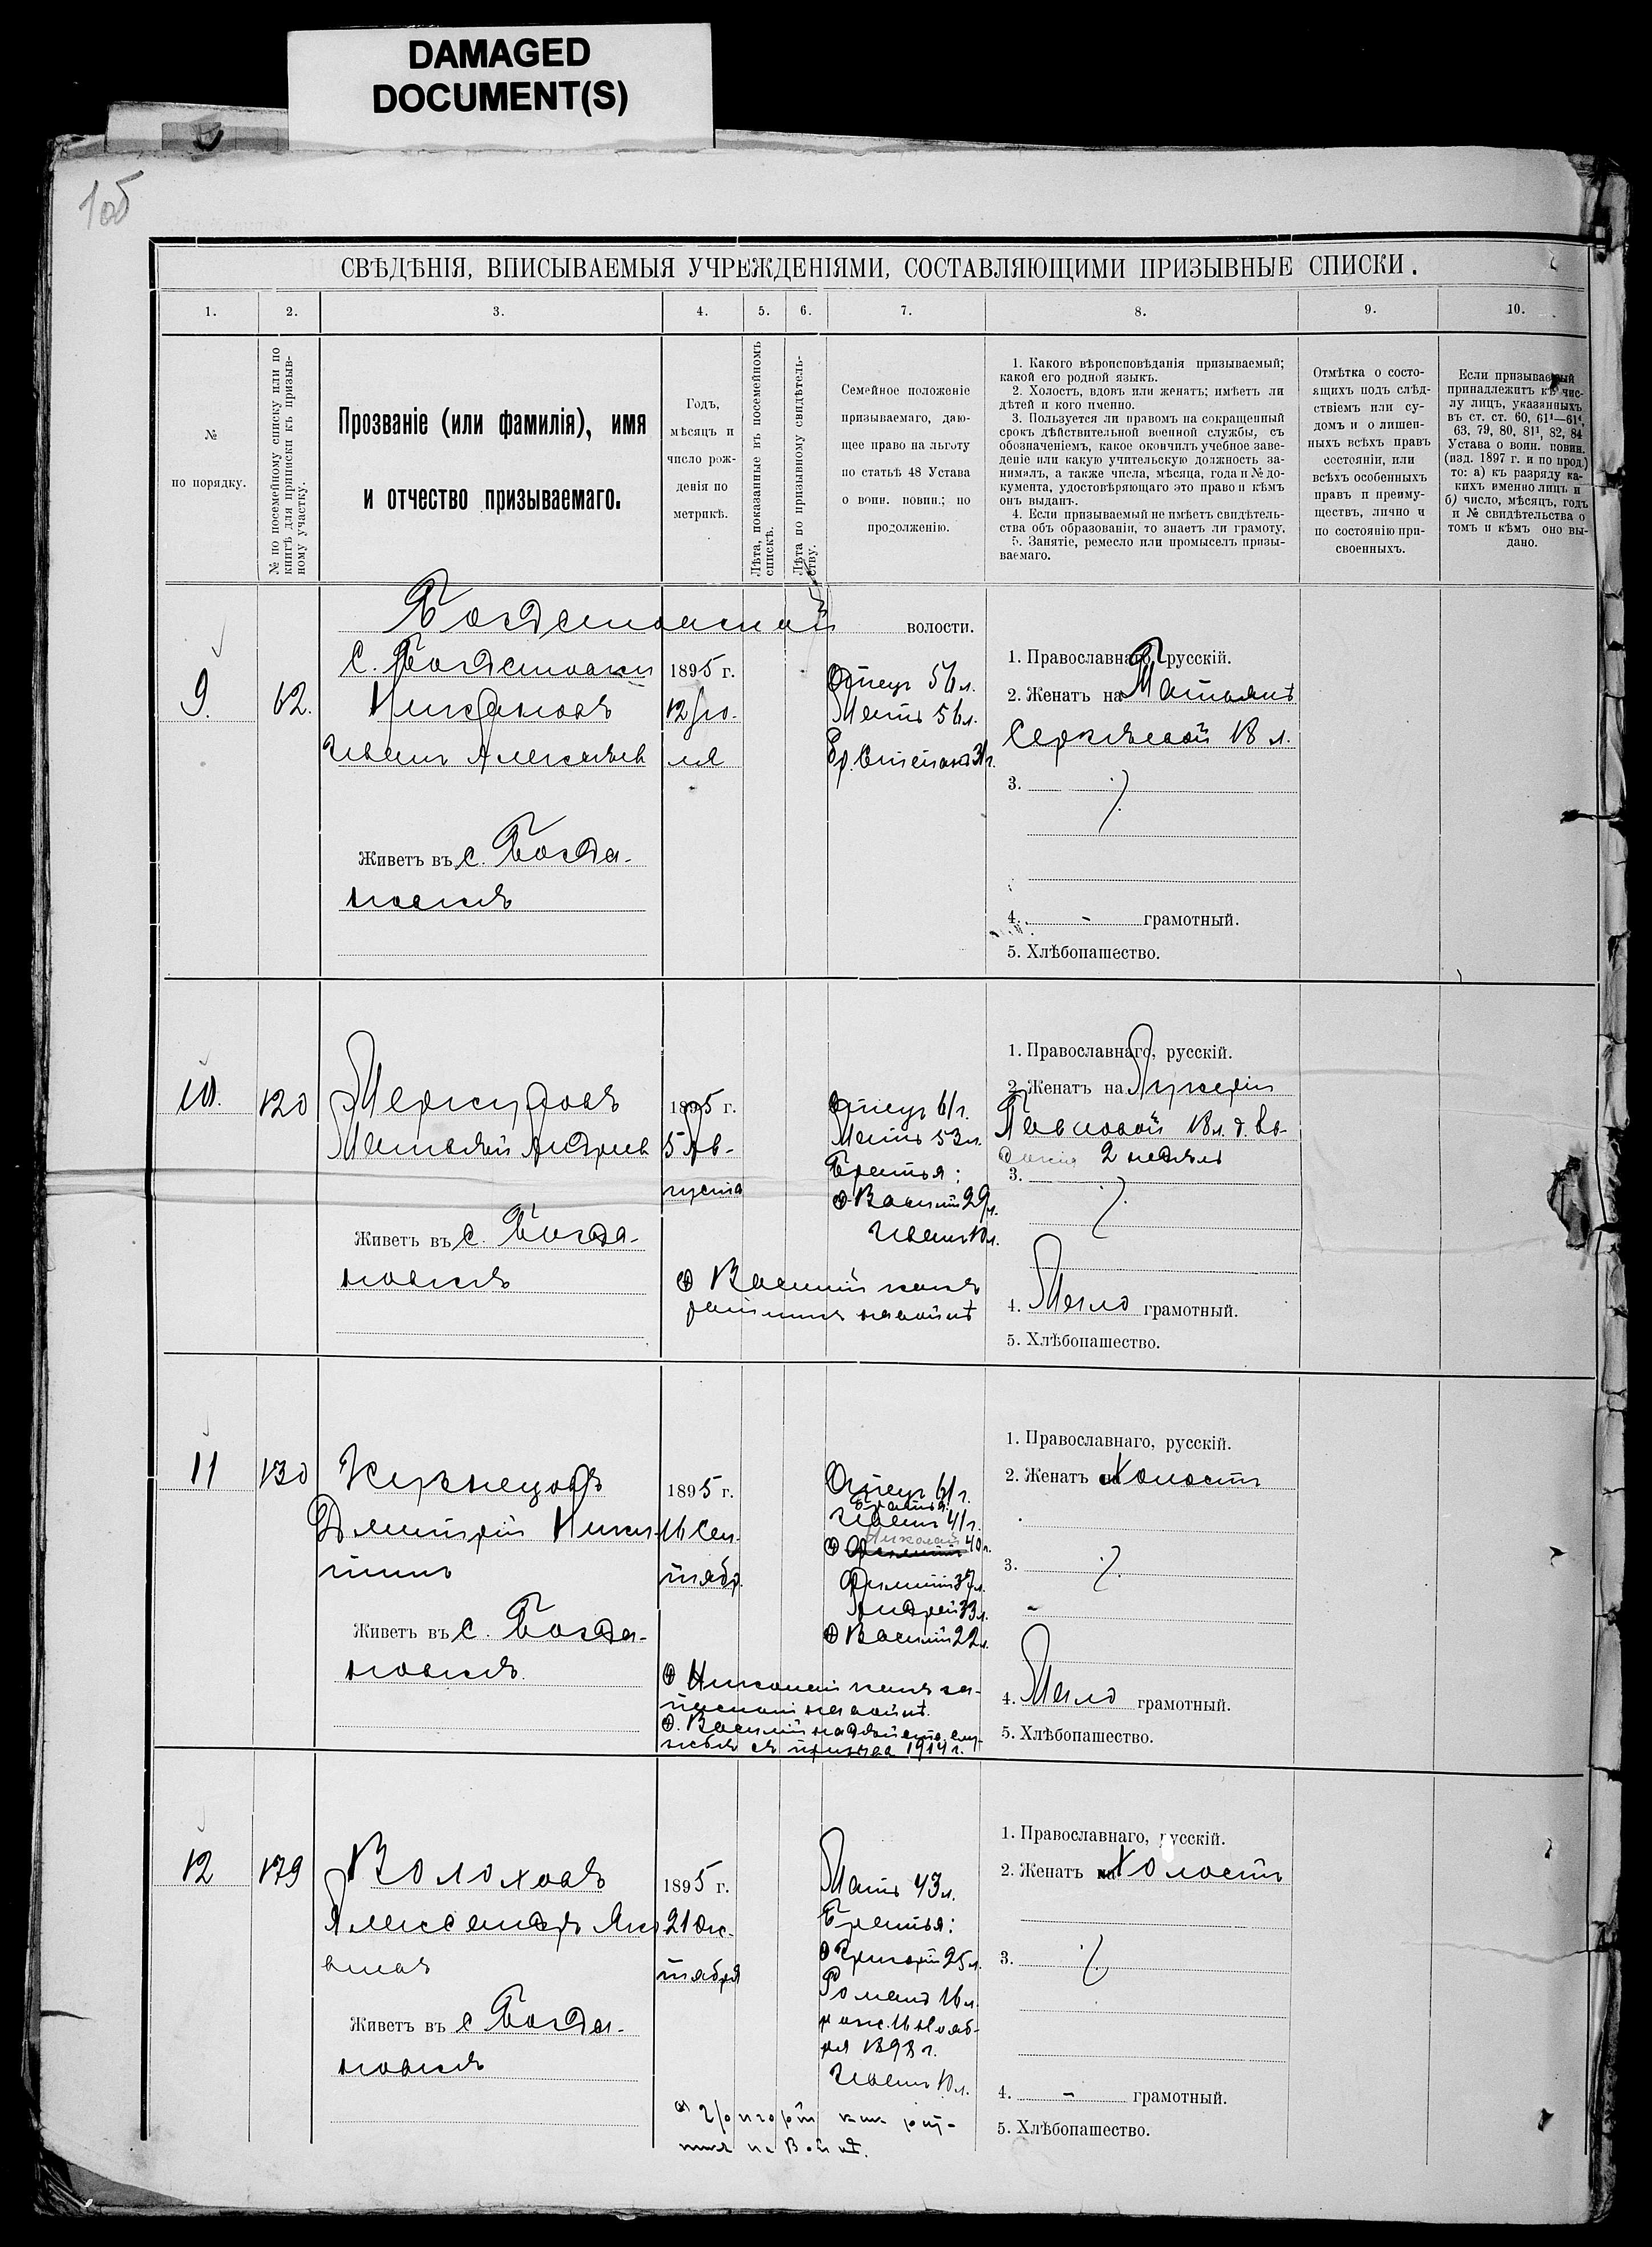 DAMAGED
DOCUMENT(S)
СВѢДѢНІЯ, ВПИСЫВАЕМЫЯ УЧРЕЖДЕНІЯМИ, СОСТАВЛЯЮЩИМИ ПРИЗЫВНЫЕ СПИСКИ.
1. 2. 3. 4. 5. 6. 7. 8. 9. 10.
№
по порядку.
№ по посемейному списку или по
книгѣ для приписки къ призыв-
ному участку.
Прозваніе (или фамилія), имя
и отчество призываемаго.
Годъ,
мѣсяцъ и
число рож-
денія по
метрикѣ.
Лѣта, показанные въ посемейномъ
спискѣ.
Лѣта по призывному свидѣтель-
ству.
Семейное положеніе
призываемаго, даю-
щее право на льготу
по статьѣ 48 Устава
о воин. повин.; по
продолженію.
1. Какого вѣроисповѣданія призываемый;
какой его родной языкъ.
2. Холостъ, вдовъ или женатъ; имѣетъ ли
дѣтей и кого именно.
3. Пользуется ли правомъ на сокращенный
срокъ дѣйствительной военной службы, съ
обозначеніемъ, какое окончилъ учебное заве-
деніе или какую учительскую должность за-
нималъ, а также числа, мѣсяца, года и № до-
кумента, удостовѣряющаго это право и кѣмъ
онъ выданъ.
4. Если призываемый не имѣетъ свидѣтель-
ства объ образованіи, то знаетъ ли грамоту.
5. Занятіе, ремесло или промыселъ призы-
ваемаго.
Отмѣтка о состо-
ящихъ подъ слѣд-
ствіемъ или су-
домъ и о лишен-
ныхъ всѣхъ правъ
состоянія, или
всѣхъ особенныхъ
правъ и преиму-
ществъ, лично и
по состоянію при-
своенныхъ.
Если призываемый
принадлежитъ къ чис-
лу лицъ, указанныхъ
въ ст. ст. 60, 61¹—61⁴,
63, 79, 80, 81¹, 82, 84
Устава о воин. повин.
(изд. 1897 г. и по прод.)
то: а) къ разряду ка-
кихъ именно лицъ и
б) число, мѣсяцъ, годъ
и № свидѣтельства о
томъ и кѣмъ оно вы-
дано.
Богдановской волости.
С. Богдановки
9. 62.
Никаноровъ
Иванъ Алексѣев
1895 г.
12 Ію-
ля
Отецъ 56 л.
Мать 56 л.
Бр. Степанъ 31 г.
1. Православнаго, русскій.
2. Женатъ на Татьянѣ
Сергѣевой 18 л.
3.
4. - грамотный.
5. Хлѣбопашество.
Живетъ въ с. Богда-
новкѣ
10. 120
Меркуловъ
Матвѣй Андреев
1895 г.
5 Ав-
густа
Отецъ 61 г.
Мать 53 л.
Братья:
Василій 29 л.
Иванъ 10 л.
Василій какъ
ратникъ на войнѣ
1. Православнаго, русскій.
2. Женатъ на Лукеріи
Павловой 18 л. д. Ев-
докія 2 недѣли
3.
4. Мало грамотный.
5. Хлѣбопашество.
Живетъ въ с. Богда-
новкѣ
11 130
Кузнецовъ
Дмитрій Ники-
тинъ
1895 г.
16 Сен-
тябр.
Отецъ 61 г.
Братья:
Иванъ 41 г.
Николай 40 л.
Филиппъ 37 л.
Андрей 33 л.
Василій 22 л.
Николай какъ за-
пасной на войнѣ.
Василій на дѣйств. слу-
жбѣ съ призыва 1914 г.
1. Православнаго, русскій.
2. Женатъ на Холостъ
3.
4. Мало грамотный.
5. Хлѣбопашество.
Живетъ въ с. Богда-
новкѣ.
12 179
Волоховъ
Александръ Яко
влевъ
1895 г.
21 Ок-
тября
Мать 43 л.
Братья:
Григорій 25 л.
Романъ 16 л.
рожд. 16 Нояб-
ря 1898 г.
Иванъ 10 л.
Григорій какъ рат-
никъ на войнѣ.
1. Православнаго, русскій.
2. Женатъ на Холостъ
3.
4. - грамотный.
5. Хлѣбопашество.
Живетъ въ с Богда-
новкѣ